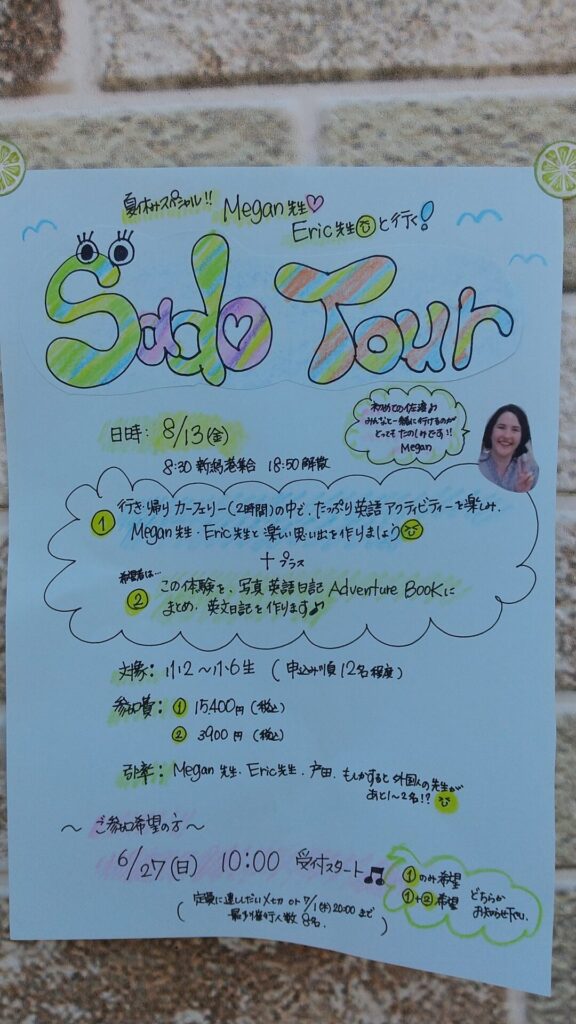 夏休みスペシャル!! Megan先生♡
Eric先生と行く!
Sado Tour
日時: 8/13(金)
8:30 新潟港集合 18:50 解散
初めての佐渡♪
みんなと一緒に行けるのが
とってもたのしみです!!
Megan
① 行き・帰りカーフェリー(2時間)の中で、たっぷり英語アクティビティーを楽しみ、
Megan先生・Eric先生と楽しい思い出を作りましょう
+プラス
希望者は…
② この体験を、写真英語日記 Adventure Bookに
まとめ、英文日記を作ります♪
対象: 小2〜小6生 (申込み順12名程度)
参加費: ① 15,400円(税込)
② 3900円(税込)
引率: Megan先生・Eric先生・戸田・もしかすると外国人の先生が
あと1〜2名!?
〜ご参加希望の方〜
6/27(日) 10:00 受付スタート♫
(定員に達ししだい〆切 or 7/1(木)20:00まで
最少催行人数8名.)
①のみ希望
①+②希望
どちらか
お知らせ下さい.